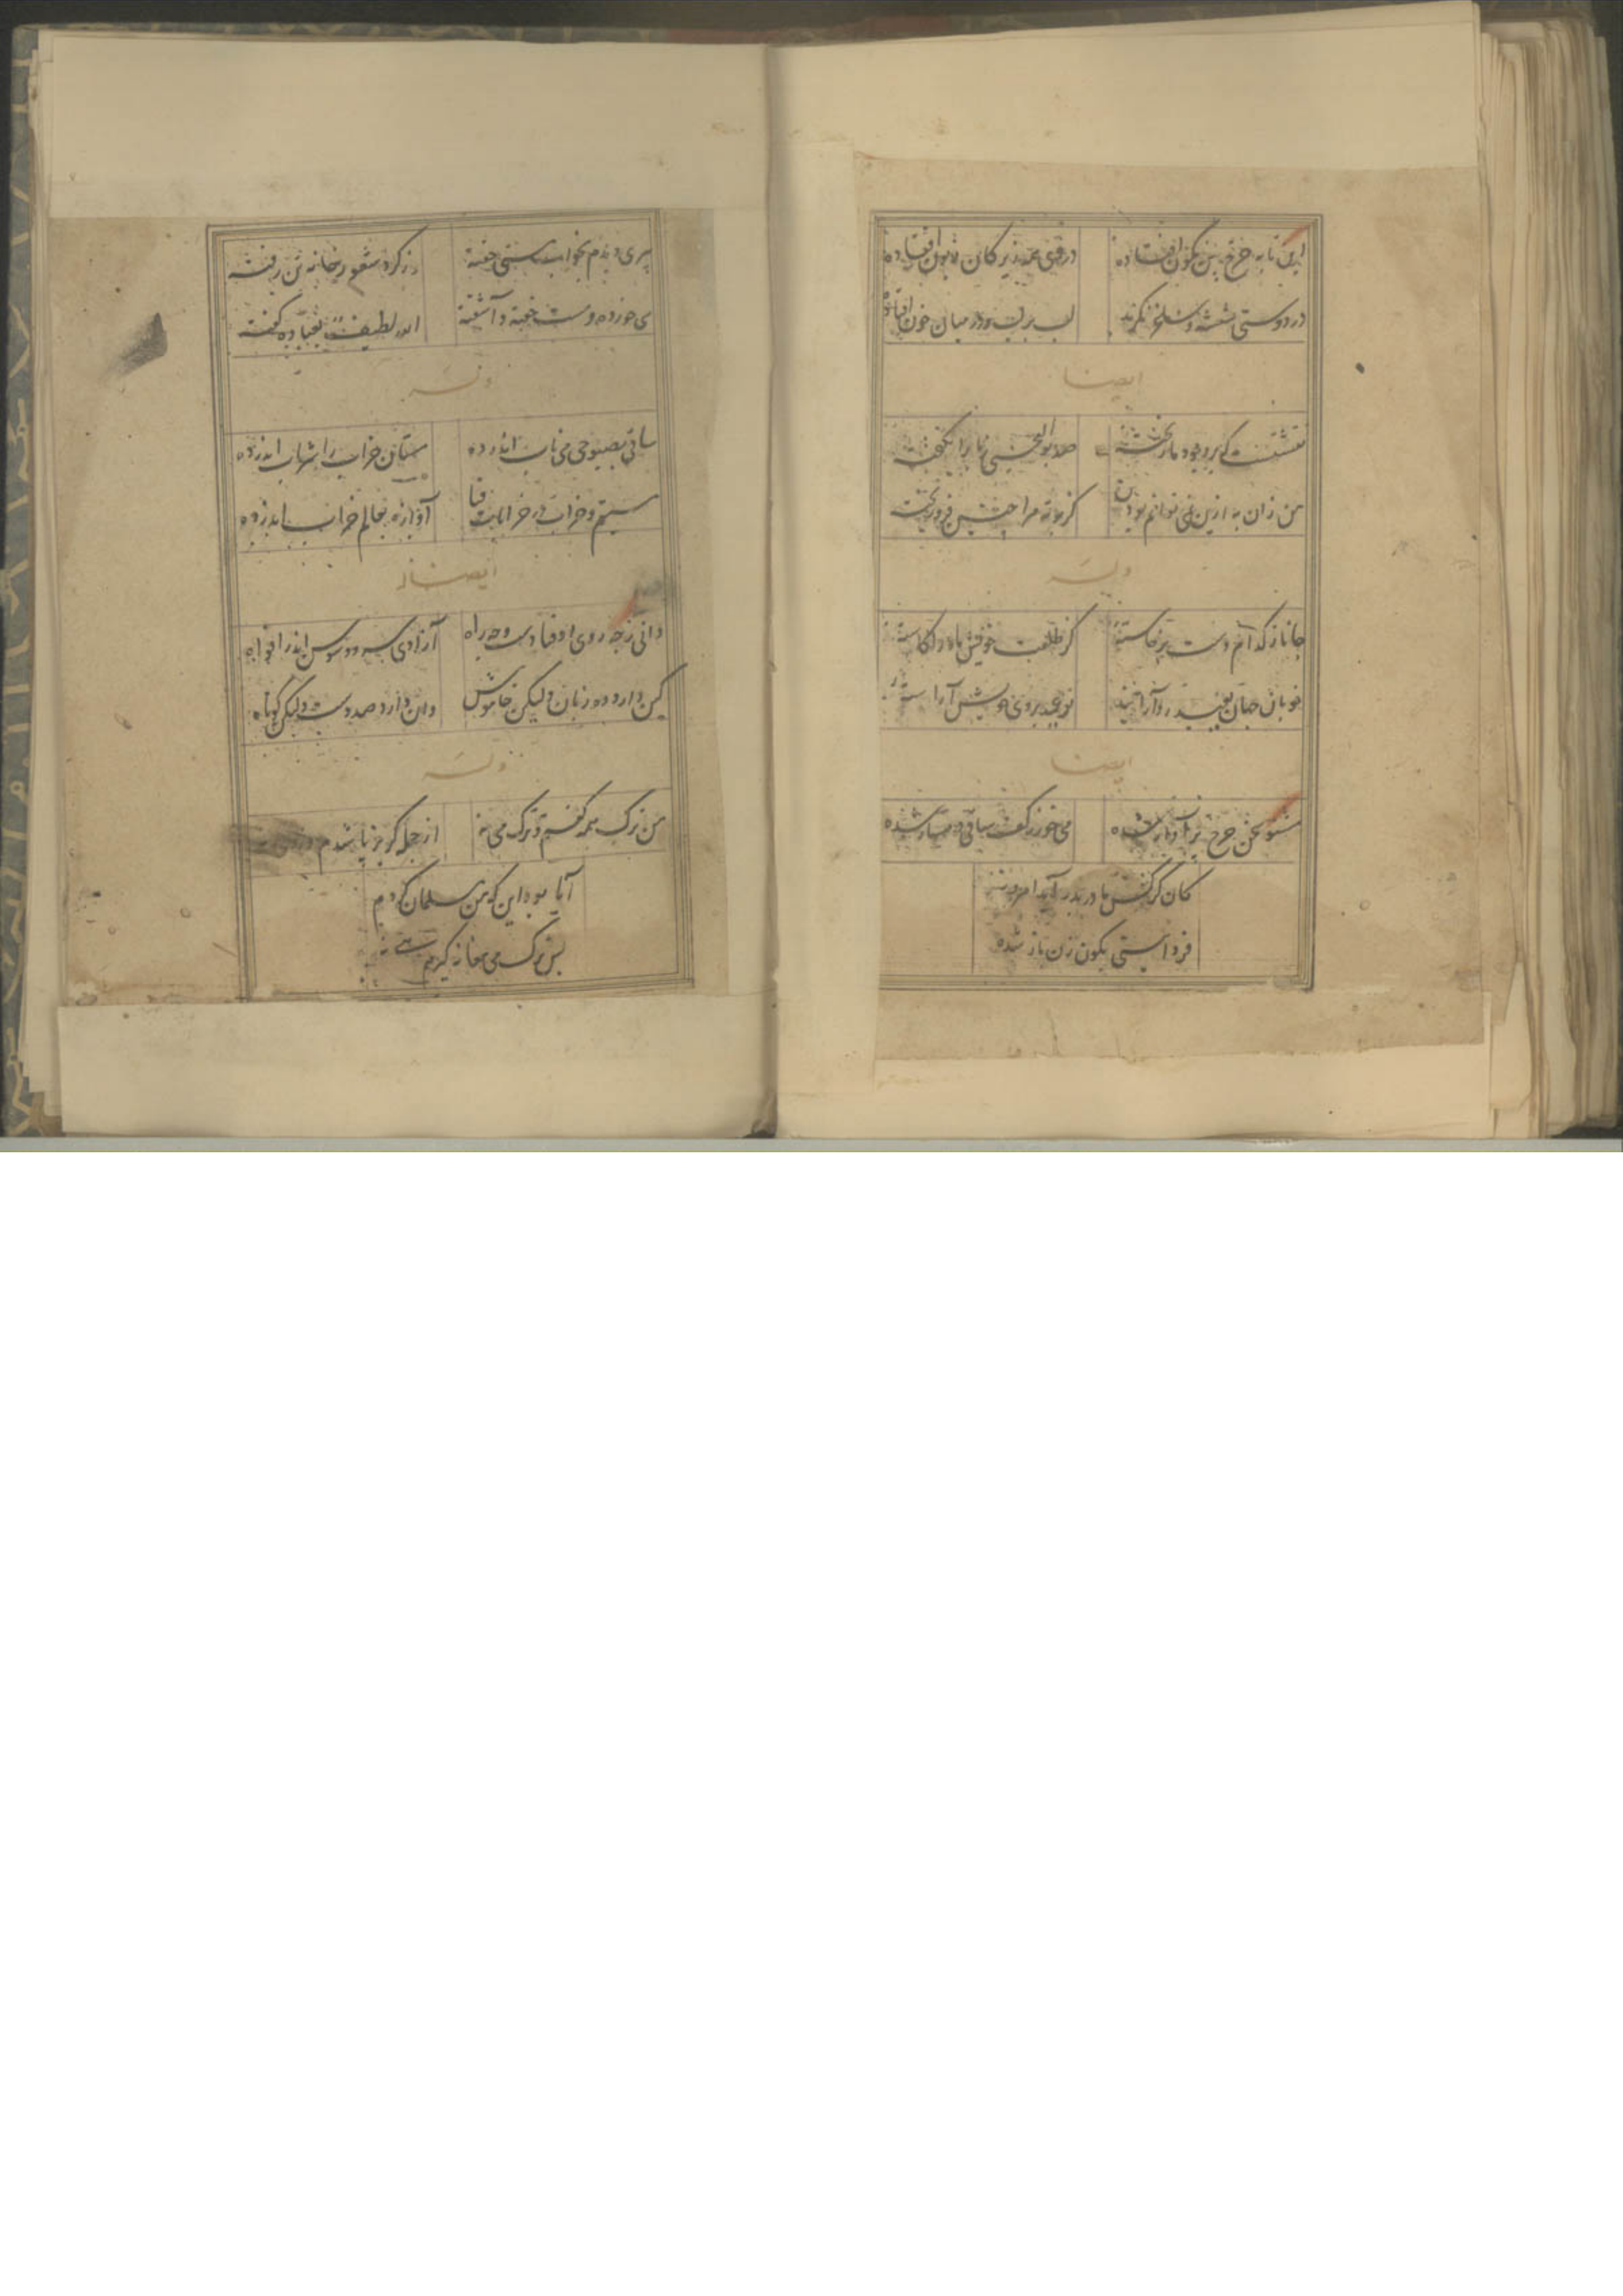 این تابه چرخ بین نگون افتاده
در وی همه زیرکان زبون افتاده
در دوستی شیشه و ساغر نگرید
لب بر لب و در میان خون افتاده
ایضا
نقشیست که بر وجود ما ریخته
صد بوالعجبی ز ما برانگیخته
من زان به ازین نمی توانم بودن
کز بوته مرا چنین فرو ریخته
وله
جانا ز کدام دست برخاسته
کز طلعت خویش ماه را کاسته
خوبان جهان بعید رو آرایند
تو عید بروی خویش آراسته
ایضا
مشنو سخن چرخ
می خور ز کف ساقی دمساز شده
کان کز کس مادر بدر آید امروز
فردا بینی بکون زن باز شده
پیری دیدم بخواب مستی خفته
وز گرد شعور خانه تن رفته
می خورده و مست خفته و آشفته
الله لطیف بعباده گفته
وله
ساقی بصبوحی می ناب اندر ده
مستان خراب را شراب اندر ده
مستیم و خراب در خرابات فنا
آوازه بعالم خراب اندر ده
ایضا
دانی ز چه روی اوفتادست و چه راه
آزادی سرو و سوسن اندر افواه
کین دارد ده زبان ولیکن خاموش
وان دارد صد دست ولیکن کوتاه
وله
من ترک همه گفتم و ترک می نه
از جمله گریز باشدم
آیا بود این که من مسلمان گردم
پس ترک می مغانه گیرم هی نه